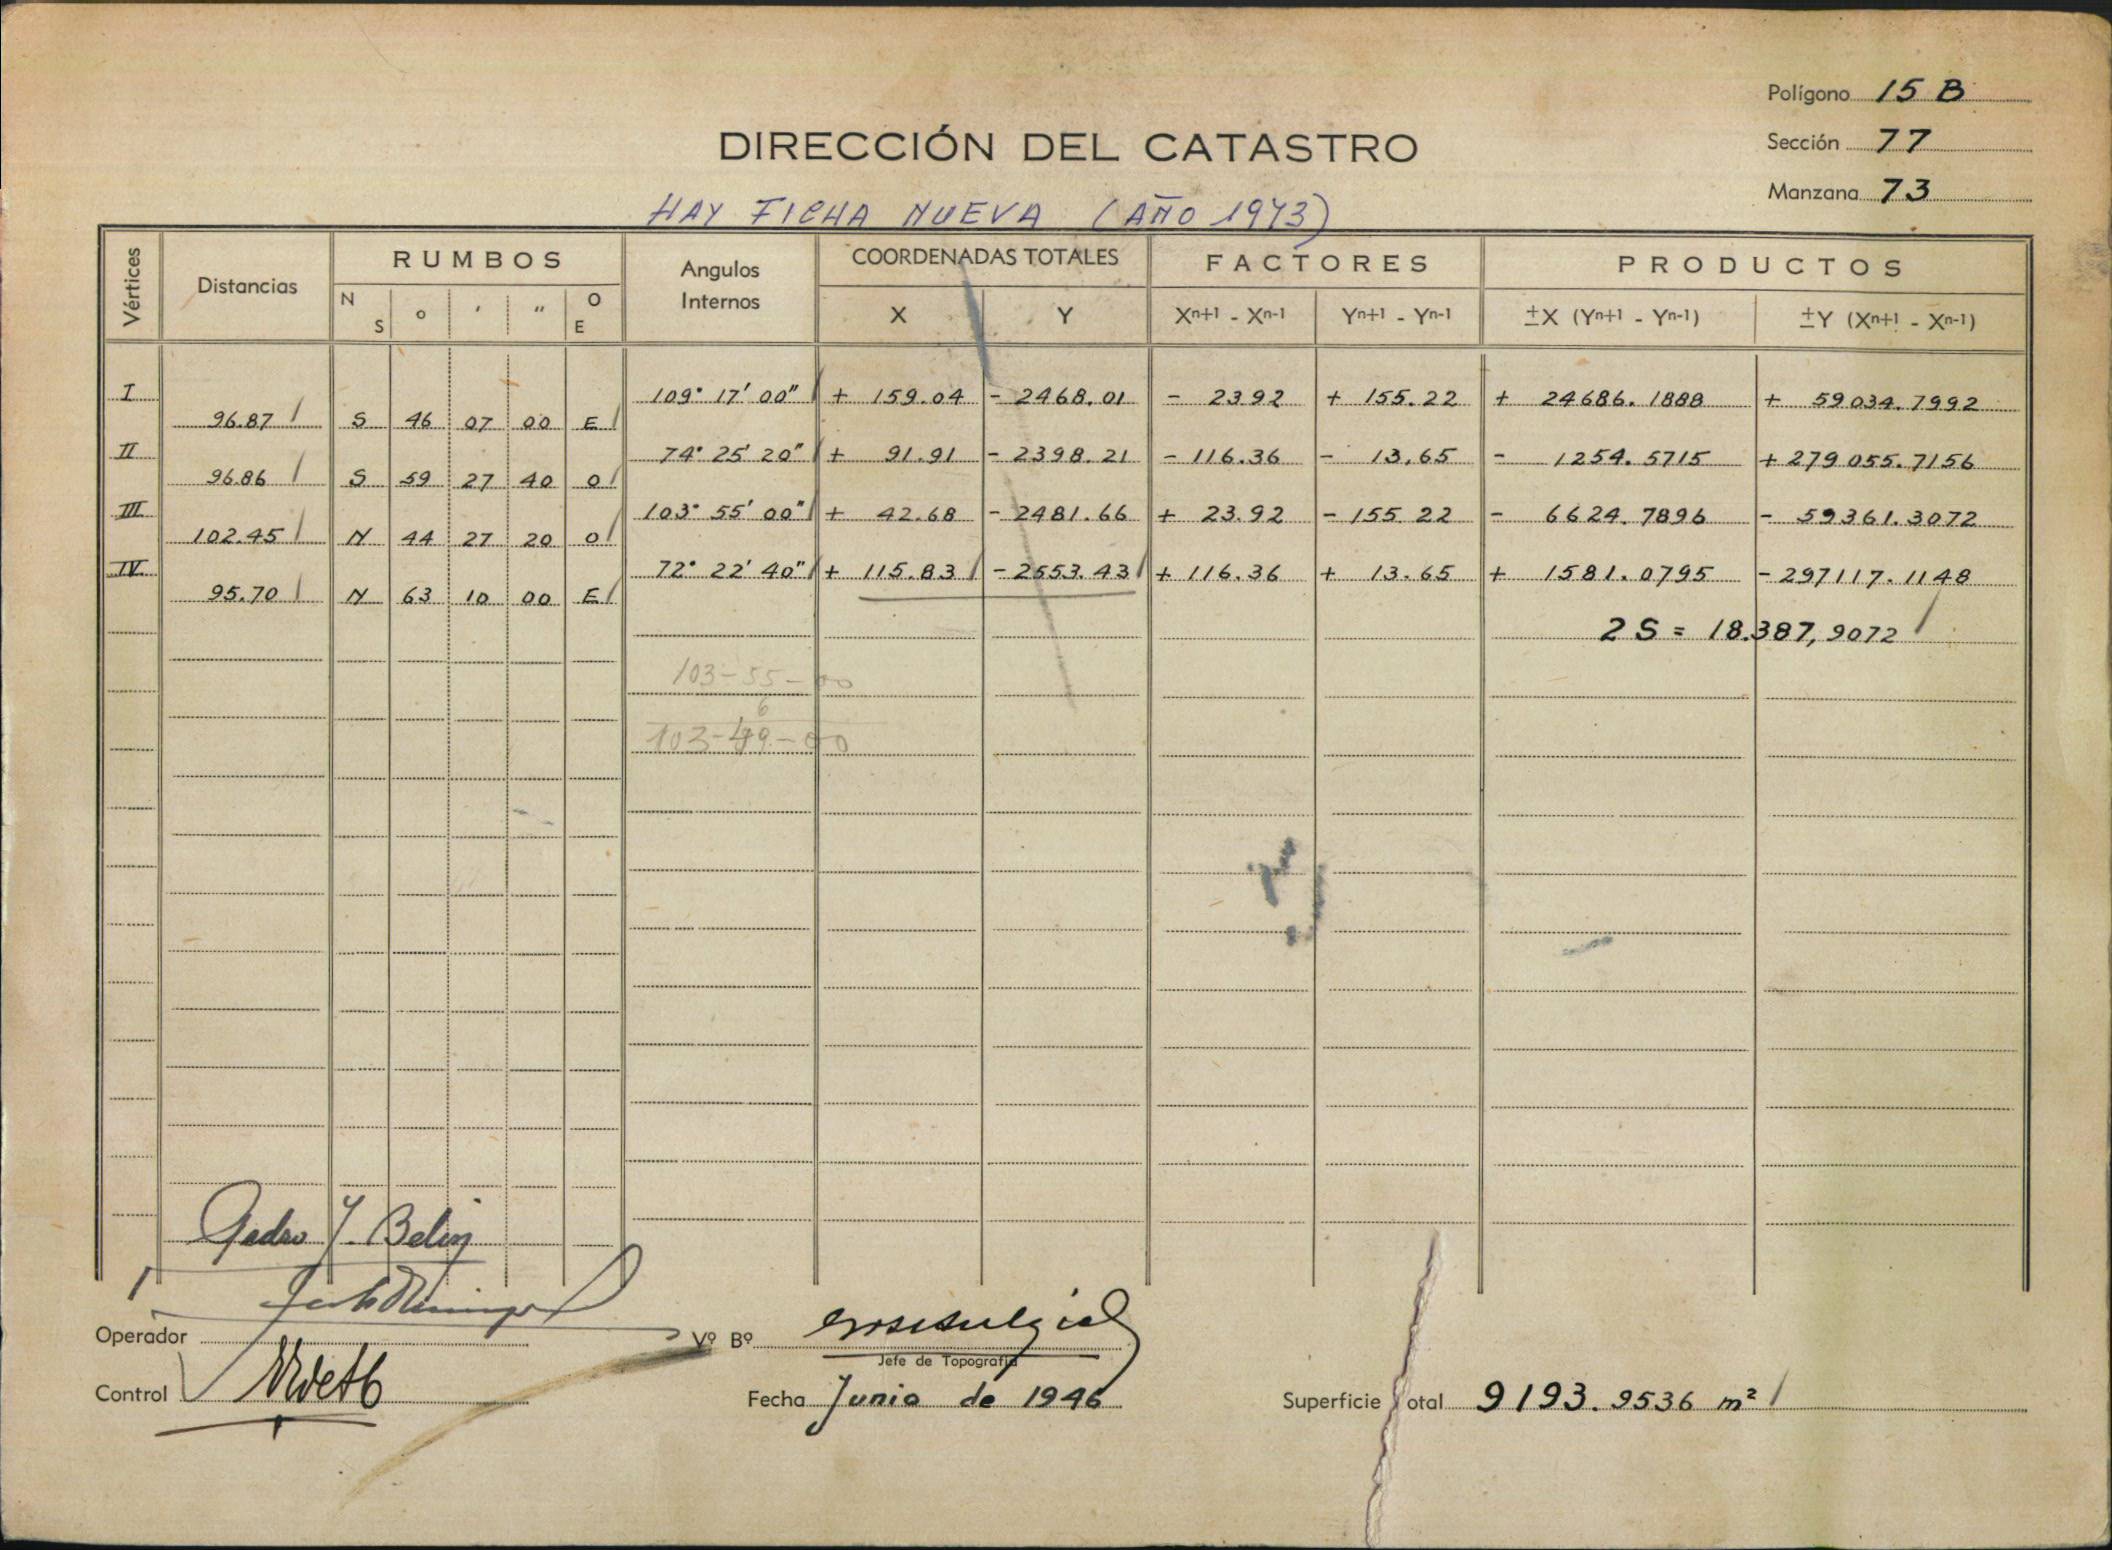 Polígono 15 B
DIRECCIÓN DEL CATASTRO
Sección 77
Manzana 73
HAY FICHA NUEVA (AÑO 1973)
Vértices Distancias RUMBOS Angulos Internos COORDENADAS TOTALES FACTORES PRODUCTOS
N S o ' " O E X Y Xn+1 - Xn-1 Yn+1 - Yn-1 ±X (Yn+1 - Yn-1) ±Y (Xn+1 - Xn-1)
I 109° 17' 00" + 159.04 - 2468.01 - 23 92 + 155.22 + 24686.1888 + 59034.7992
96.87 S 46 07 00 E
II 74° 25' 20" + 91.91 - 2398.21 - 116.36 - 13,65 - 1254.5715 + 279055.7156
96.86 S 59 27 40 O
III 103° 55' 00" + 42.68 - 2481.66 + 23.92 - 155 22 - 6624.7896 - 59361.3072
102.45 N 44 27 20 O
IV 72° 22' 40" + 115.83 - 2553.43 + 116.36 + 13.65 + 1581.0795 - 297117.1148
95.70 N 63 10 00 E
2 S = 18.387,9072
103-55-00
6
103-49-00
Pedro J. Belin
Operador
Vº Bº
Jefe de Topografía
Control
Fecha Junio de 1946
Superficie Total 9193.9536 m²